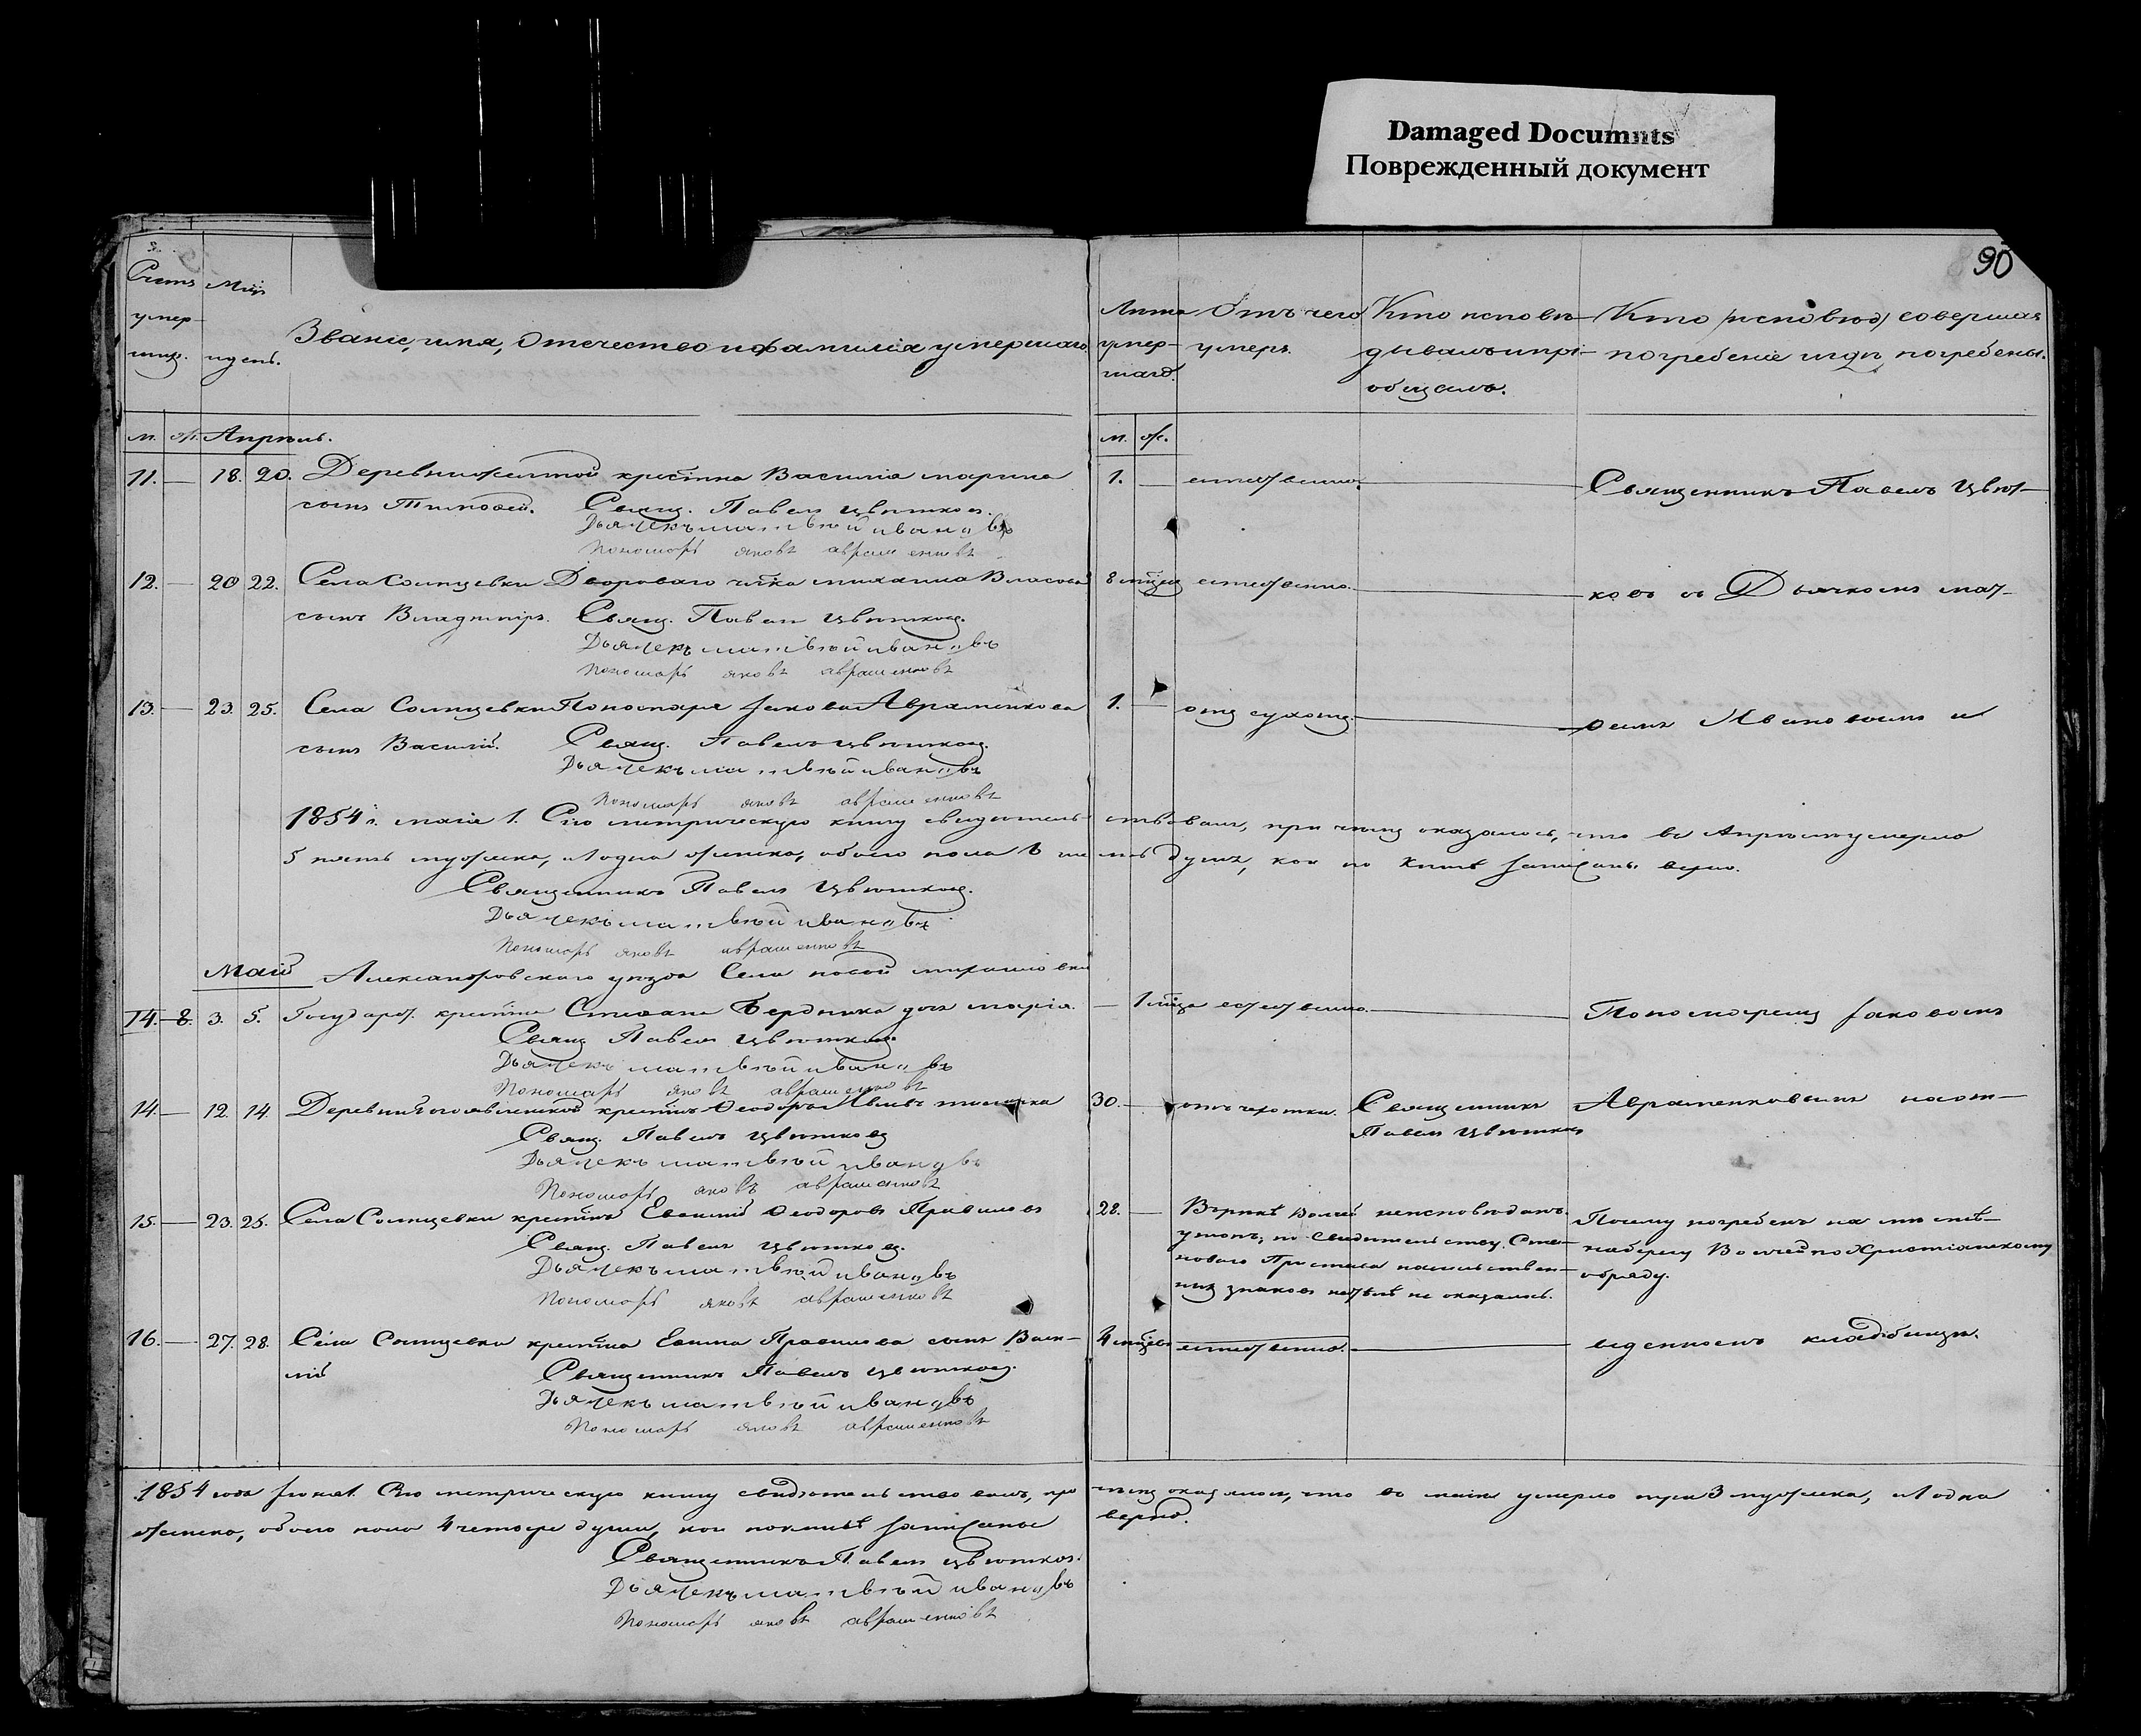 Damaged Documnts
Поврежденный документ
90
Счетъ умер-шихъ.
М-цъ и день.
Званіе, имя, отечество и фамилія умершаго
Лета умер-шаго.
Отъ чего умеръ.
Кто исповѣ-дывалъ и прі-общалъ.
Кто (исповѣд) совершалъ погребеніе и гдѣ погребены.
м. ж. Апрѣль.
м. ж.
11. — 18. 20. Деревни Желтой крестьяна Василія
сынъ Тимофей. Свящ. Павелъ Цвѣтковъ.
Дьячекъ матвѣй ивановъ
Пономарь яковъ авраменковъ
1. — естественно. — Священникъ Павелъ Цвѣт-
12. — 20 22. Села Солнцевки Двороваго чл-ка михаила Власова
сынъ Владимiръ. Свящ. Павелъ Цвѣтковъ.
Дьячекъ матвѣй ивановъ
Пономарь яковъ авраменковъ
8 мѣсяц естественно. — ковъ съ Дьячкомъ мат-
13. — 23. 25. Села Солнцевки Пономаря Іакова Авраменкова
сынъ Василій. Свящ. Павелъ Цвѣтковъ.
Дьячекъ матвѣй ивановъ
Пономарь яковъ авраменковъ
1. — отъ сухоты. — феемъ Ивановымъ и
1854 г. маія 1. Сію метрическую книгу свидѣтель-ствовали, при чемъ оказалось, что въ Апрѣлѣ умерло
5 пять мужеска, 1 одна женска, обоего пола 6 шесть душъ, кои по книгѣ записаны верно.
Священникъ Павелъ Цвѣтковъ.
Дьячекъ матвѣй ивановъ
Пономарь яковъ авраменковъ
Маій Александровскаго уѣзда Села
14. — 8. 3. 5. Государст. крестьяна Степана Бердника дочь марія.
Свящ. Павелъ Цвѣтковъ.
Дьячекъ матвѣй ивановъ
Пономарь яковъ авраменковъ
— 1 мѣсяца естественно. — Пономаремъ Іаковомъ
14. — 12. 14 Деревни крестьянъ Ѳеодоръ
Свящ. Павелъ Цвѣтковъ
Дьячекъ матвѣй ивановъ
Пономарь яковъ авраменковъ
30. — отъ чахотки. Священникъ Авраменковымъ на от-
Павелъ Цвѣтковъ
15. — 23. 25. Села Солнцевки крестьянъ Евѳимій Ѳеодоровъ Правиловъ
Свящ. Павелъ Цвѣтковъ.
Дьячекъ матвѣй ивановъ
Пономарь яковъ авраменковъ
28. — Волчей неисповѣданъ. Посему погребенъ на томъ мѣстѣ-
утопъ, по свидетельству Ста- на берегу Волчей по Христіанскому
новаго Пристава насильствен- обряду.
ныхъ знаковъ на тѣлѣ не оказалось.
16. — 27. 28. Села Солнцевки крестьяна Евѳима Правилова сынъ Васи-
лій Священникъ Павелъ Цвѣтковъ.
Дьячекъ матвѣй ивановъ
Пономарь яковъ авраменковъ
4 мѣсяцевъ естественно. — веденномъ кладбищѣ.
1854 года Іюня 1. Сію метрическую книгу свидѣтельствовали, при чемъ оказалось, что въ маіи умерло три 3 мужеска, 1 одна
женска, обоего пола 4 четыре души, кои по книгѣ записаны верно.
Священникъ Павелъ Цвѣтковъ.
Дьячекъ матвѣй ивановъ
Пономарь яковъ авраменковъ